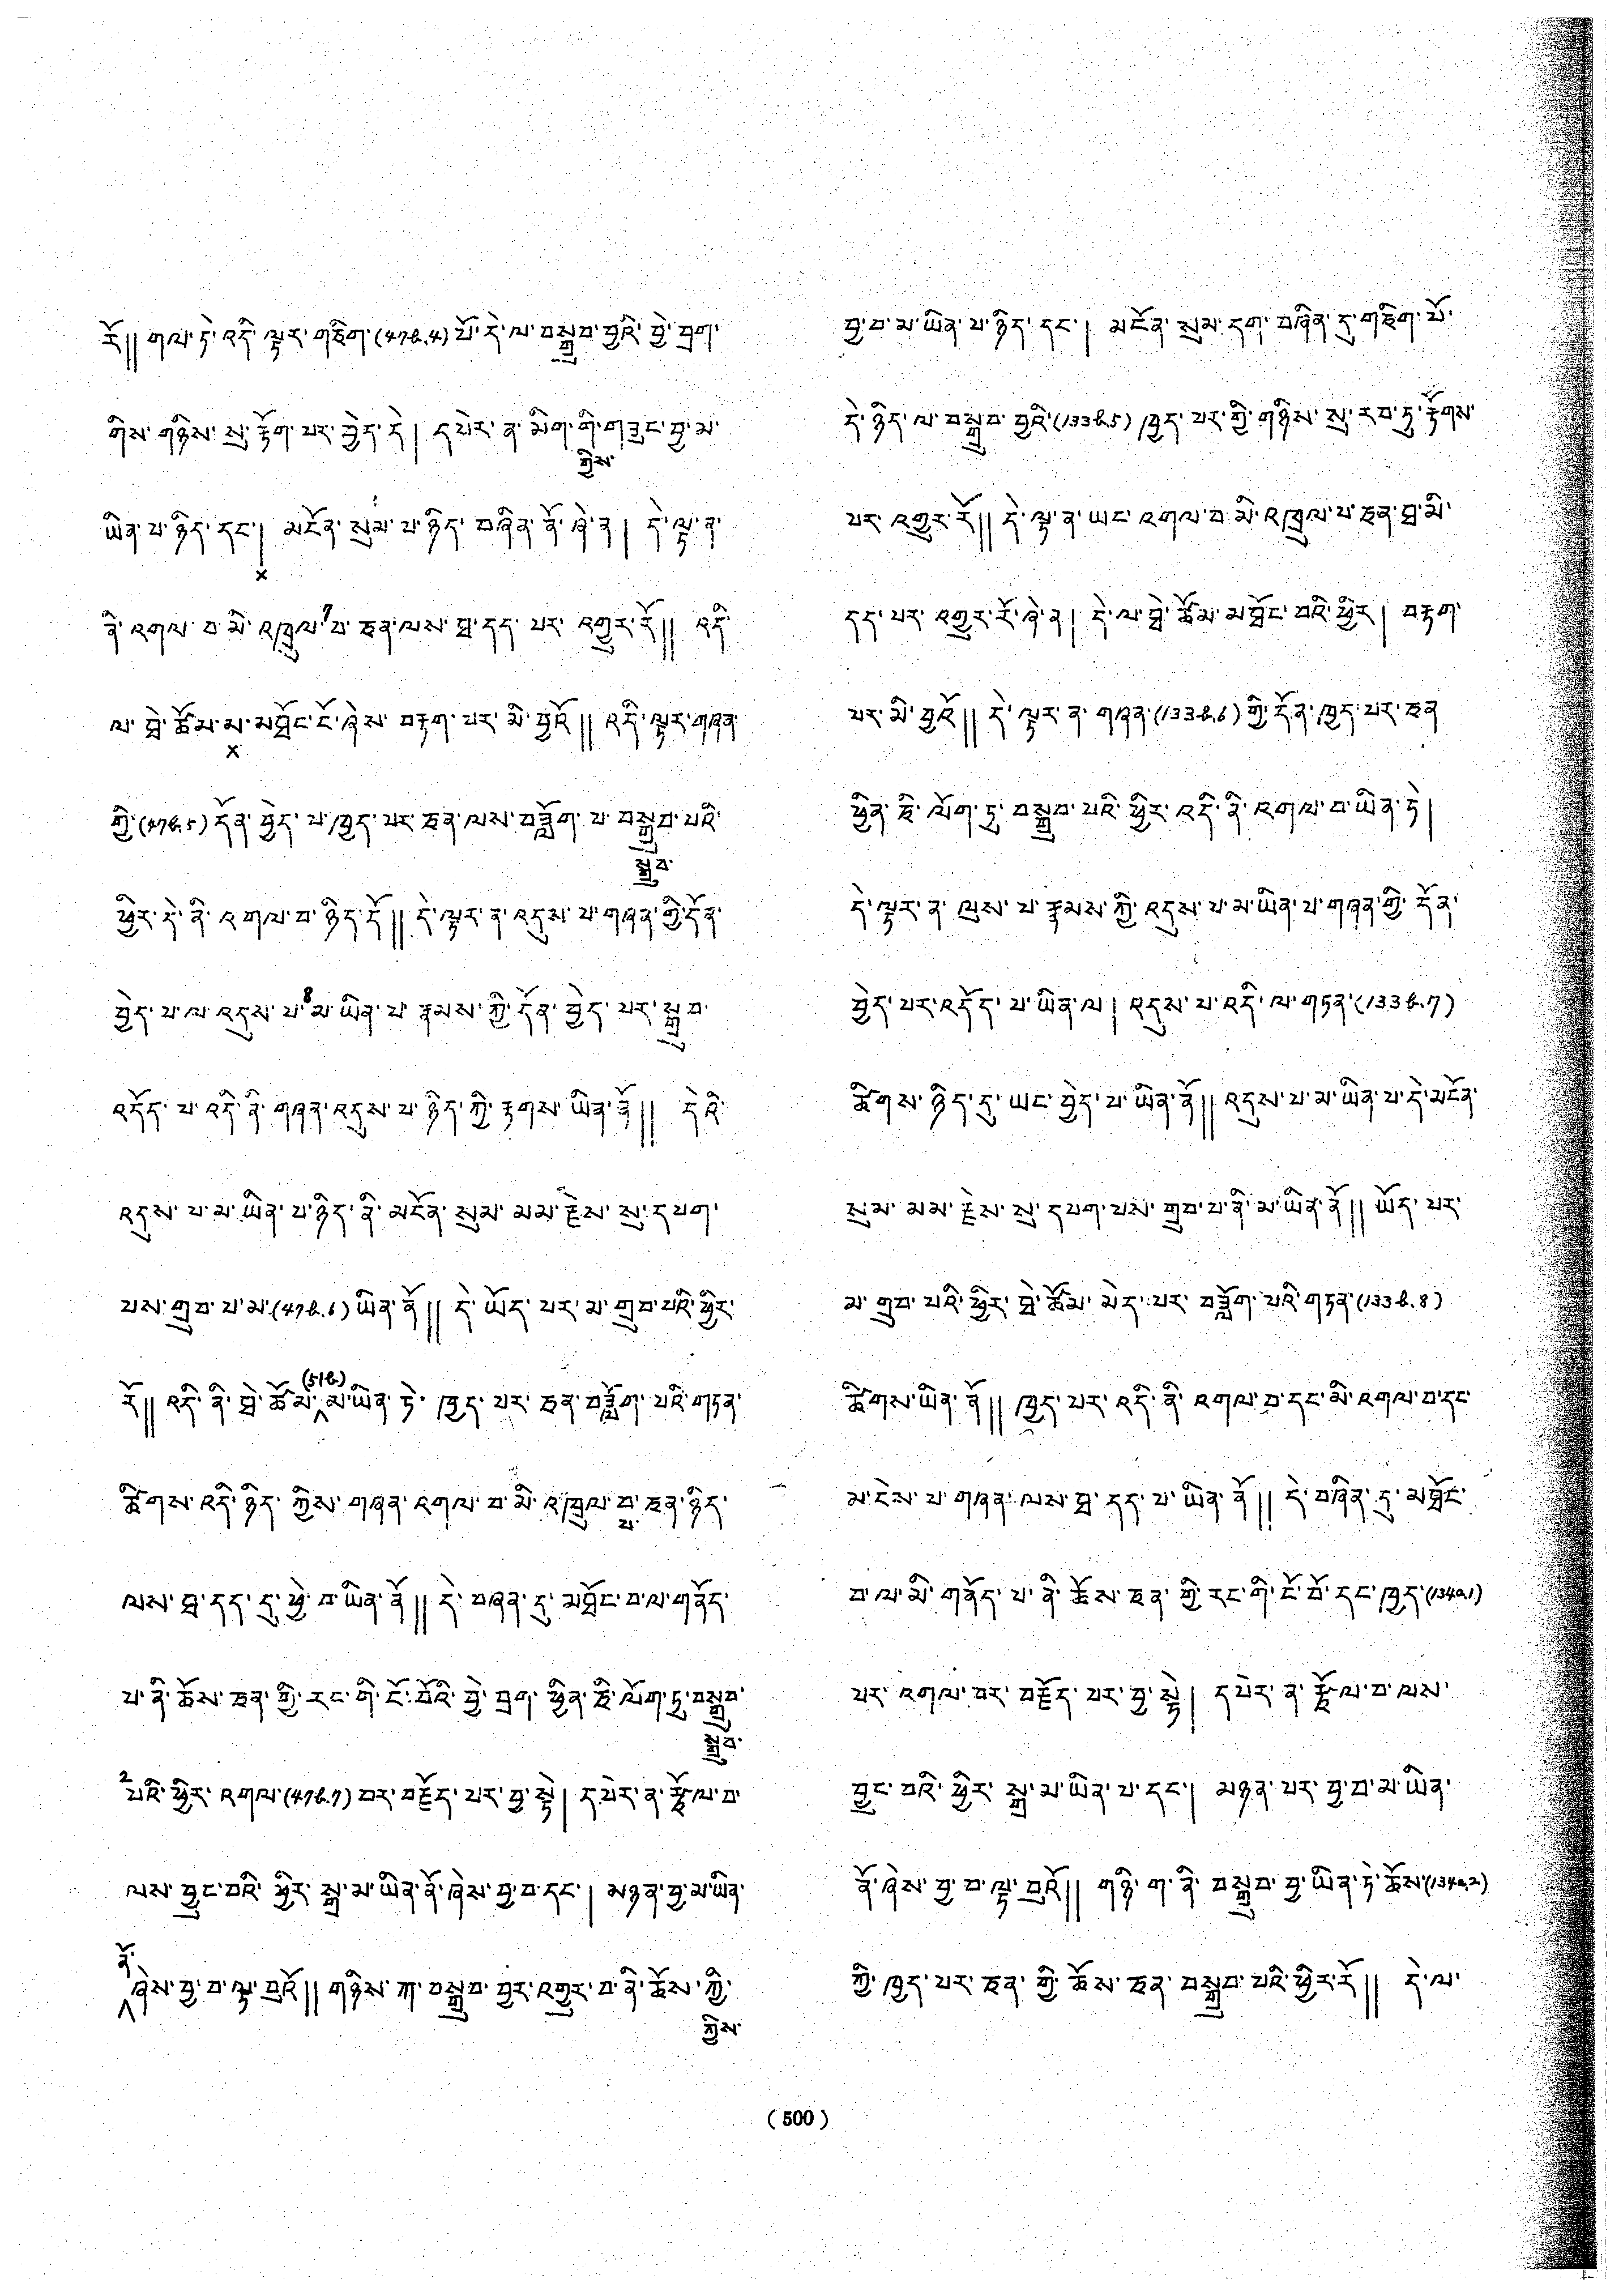 རོ།། གལ་ཏེ་འདི་ལྟར་གཅིག་(47b.4)པོ་དེ་ལ་བསྒྲུབ་བྱའི་བྱེ་བྲག་
གིས་གཉིས་སུ་རྟོག་པར་བྱེད་དེ། དཔེར་ན་མིག་གི་གཟུང་བྱ་མ་
ཀྱིས་
ཡིན་པ་ཉིད་དང་། མངོན་སུམ་པ་ཉིད་བཞིན་ནོ་ཞེ་ན། དེ་ལྟ་ན་
×
ནི་འགལ་བ་མི་འཁྲུལ་7བ་ཅན་ལས་ཐ་དད་པར་འགྱུར་རོ།། འདི་
ལ་ཐེ་ཚོམ་མ་མཐོང་ངོ་ཞེས་བརྟག་པར་མི་བྱའོ།། འདི་ལྟར་གཞན་
×
གྱི་(47b.5)དོན་བྱེད་པ་ཁྱད་པར་ཅན་ལས་བཟློག་པ་བསྒྲུབ་པའི་
སྒྲུབ་
ཕྱིར་དེ་ནི་འགལ་བ་ཉིད་དོ།། དེ་ལྟར་ན་འདུས་པ་གཞན་གྱི་དོན་
བྱེད་པ་ལ་འདུས་པ་8མ་ཡིན་པ་རྣམས་ཀྱི་དོན་བྱེད་པར་སྒྲུབ་
འདོད་པ་འདི་ནི་གཞན་འདུས་པ་ཉིད་ཀྱི་རྟགས་ཡིན་ནོ།། དེའི་
འདུས་པ་མ་ཡིན་པ་ཉིད་ནི་མངོན་སུམ་མམ་རྗེས་སུ་དཔག་
པས་གྲུབ་པ་མ་(47b.6)ཡིན་ནོ།། དེ་ཡོད་པར་མ་གྲུབ་པའི་ཕྱིར་
(51b)
རོ།། འདི་ནི་ཐེ་ཚོམ་མ་ཡིན་ཏེ་ཁྱད་པར་ཅན་བཟློག་པའི་གཏན་
ཚིགས་འདི་ཉིད་ཀྱིས་གཞན་འགལ་བ་མི་འཁྲུལ་བ་ཅན་ཉིད་
པ་
ལས་ཐ་དད་དུ་ཕྱེ་བ་ཡིན་ནོ།། དེ་བཞན་དུ་མཐོང་བ་ལ་གནོད་
པ་ནི་ཆོས་ཅན་གྱི་རང་གི་ངོ་བོའི་བྱེ་བྲག་ཕྱིན་ཅི་ལོག་ཏུ་བསྒྲུབ་
སྒྲུབ་
2པའི་ཕྱིར་འགལ་(47b.7)བར་བརྗོད་པར་བྱ་སྟེ། དཔེར་ན་རྩོལ་བ་
ལས་བྱུང་བའི་ཕྱིར་སྒྲ་མ་ཡིན་ནོ་ཞེས་བྱ་བ་དང་། མཉན་བྱ་མ་ཡིན་
ནོ་
ཞེས་བྱ་བ་ལྟ་བུའོ།། གཉིས་ཀ་བསྒྲུབ་བྱར་འགྱུར་བ་ནི་ཆོས་ཀྱི་
ཀྱིས་
བྱ་བ་མ་ཡིན་པ་ཉིད་དང་། མངོན་སུམ་དག་བཞིན་དུ་གཅིག་པོ་
དེ་ཉིད་ལ་བསྒྲུབ་བྱའི་(133b.5)ཁྱད་པར་གྱི་གཉིས་སུ་རབ་ཏུ་རྟོགས་
པར་འགྱུར་རོ།། དེ་ལྟ་ན་ཡང་འགལ་བ་མི་འཁྲུལ་པ་ཅན་ཐ་མི་
དད་པར་འགྱུར་རོ་ཞེ་ན། དེ་ལ་ཐེ་ཚོམ་མཐོང་བའི་ཕྱིར། བརྟག་
པར་མི་བྱའོ།། དེ་ལྟར་ན་གཞན་(133b.6)གྱི་དོན་ཁྱད་པར་ཅན
ཕྱིན་ཅི་ལོག་ཏུ་བསྒྲུབ་པའི་ཕྱིར་འདི་ནི་འགལ་བ་ཡིན་ཏེ།
དེ་ལྟར་ན་ལུས་པ་རྣམས་ཀྱི་འདུས་པ་མ་ཡིན་པ་གཞན་གྱི་དོན་
བྱེད་པར་འདོད་པ་ཡིན་ལ། འདུས་པ་འདི་ལ་གཏན་(133b.7)
ཚིགས་ཉིད་དུ་ཡང་བྱེད་པ་ཡིན་ནོ།། འདུས་པ་མ་ཡིན་པ་དེ་མངོན་
སུམ་མམ་རྗེས་སུ་དཔག་པས་གྲུབ་པ་ནི་མ་ཡིན་ནོ།། ཡོད་པར་
མ་གྲུབ་པའི་ཕྱིར་ཐེ་ཚོམ་མེད་པར་བཟློག་པའི་གཏན་(133b.8)
ཚིགས་ཡིན་ནོ།། ཁྱད་པར་འདི་ནི་འགལ་བ་དང་མི་འགལ་བ་དང་
མ་ངེས་པ་གཞན་ལས་ཐ་དད་པ་ཡིན་ནོ།། དེ་བཞིན་དུ་མཐོང་
བ་ལ་མི་གནོད་པ་ནི་ཆོས་ཅན་གྱི་རང་གི་ངོ་བོ་དང་ཁྱད་(134a.1)
པར་འགལ་བར་བརྗོད་པར་བྱ་སྟེ། དཔེར་ན་རྩོལ་བ་ལས་
བྱུང་བའི་ཕྱིར་སྒྲ་མ་ཡིན་པ་དང་། མཉན་པར་བྱ་བ་མ་ཡིན་
ནོ་ཞེས་བྱ་བ་ལྟ་བུའོ།། གཉི་ག་ནི་བསྒྲུབ་བྱ་ཡིན་ཏེ་ཆོས་(134a.2)
ཀྱི་ཁྱད་པར་ཅན་གྱི་ཆོས་ཅན་བསྒྲུབ་པའི་ཕྱིར་རོ།། དེ་ལ་
(500)